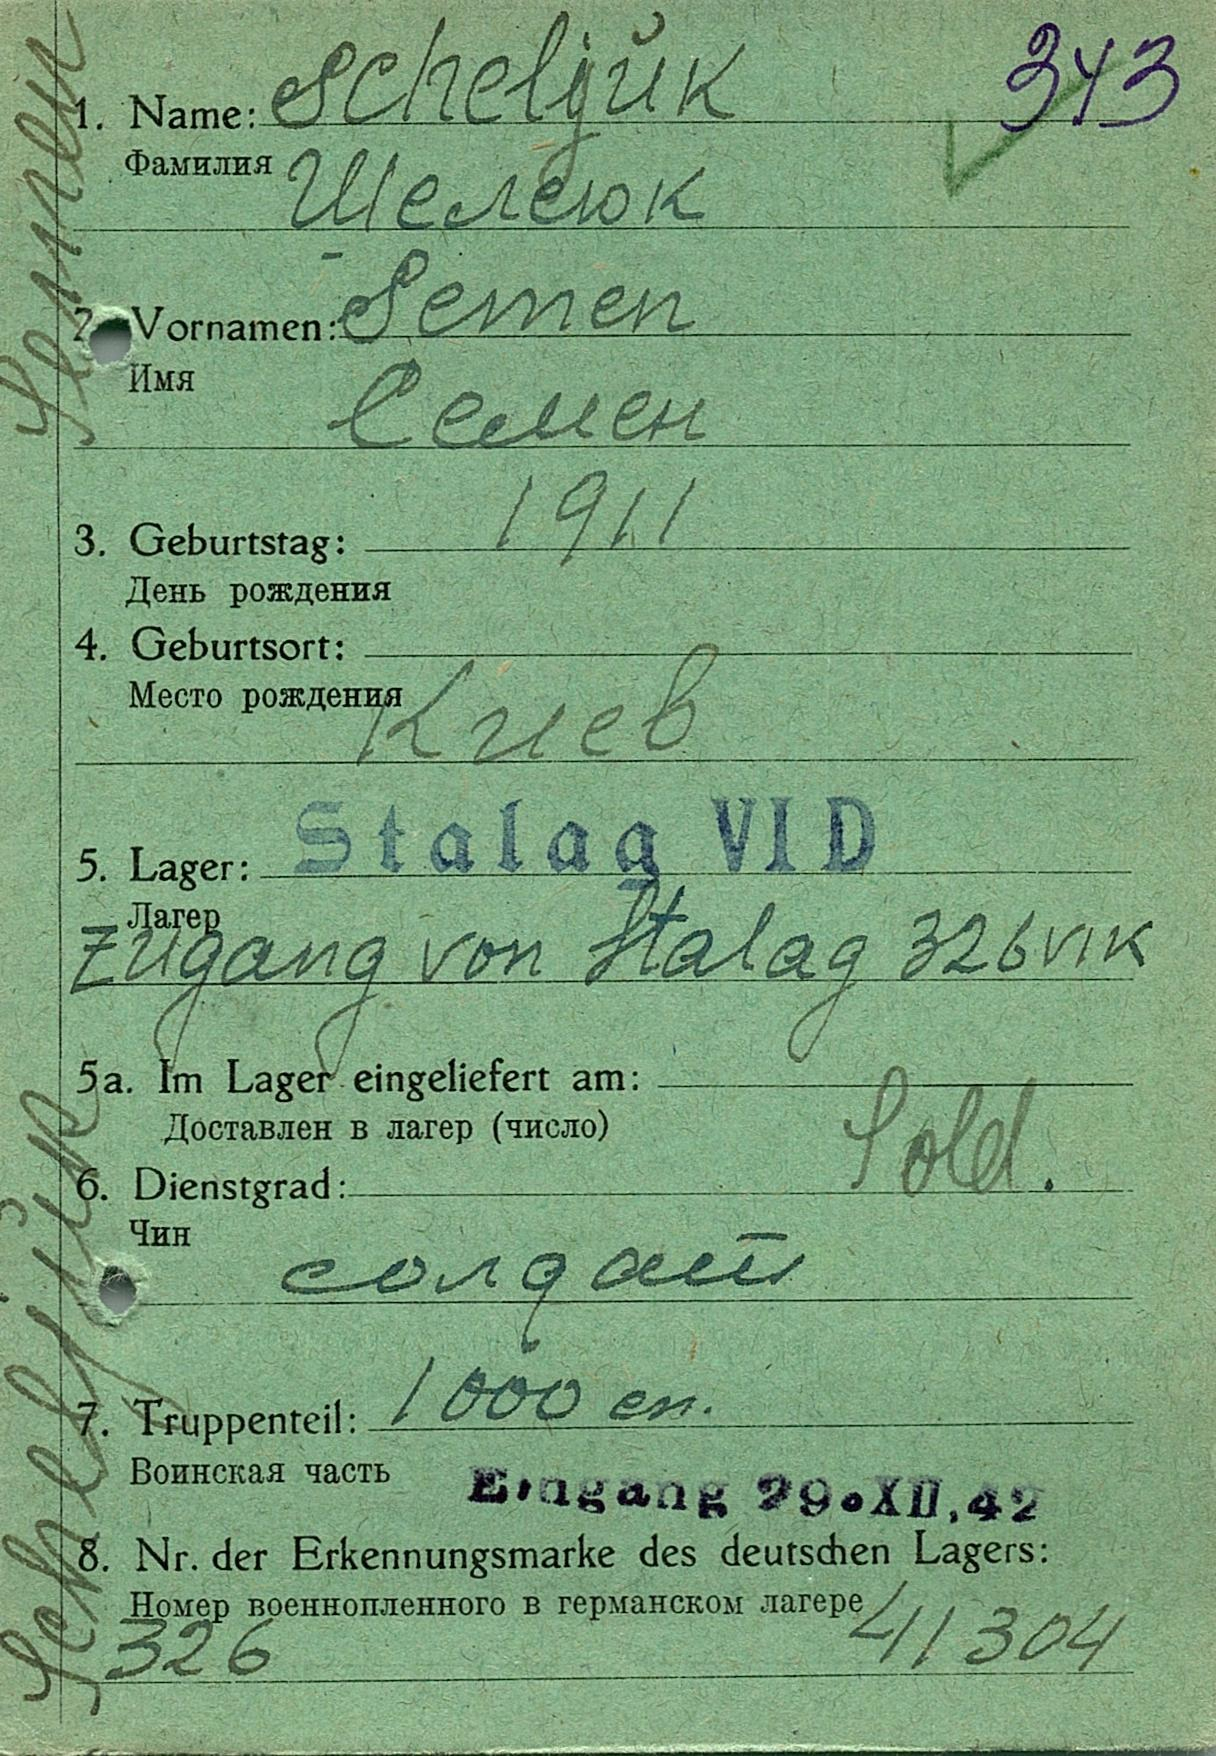 343
1. Name: Scheljŭk
Фамилия
Шелеюк
2. Vornamen: Semen
Имя
Семен
3. Geburtstag: 1911
День рождения
4. Geburtsort:
Место рождения
Киев
5. Lager: Stalag VI D
Лагер
Zugang von Stalag 326 VIK
5a. Im Lager eingeliefert am:
Доставлен в лагер (число)
Sold.
6. Dienstgrad:
Чин
солдат
7. Truppenteil: 1000 сп.
Воинская часть
Eingang 29.XII.42
8. Nr. der Erkennungsmarke des deutschen Lagers:
Номер военнопленного в германском лагере
326 41304
Scheljŭk Semen